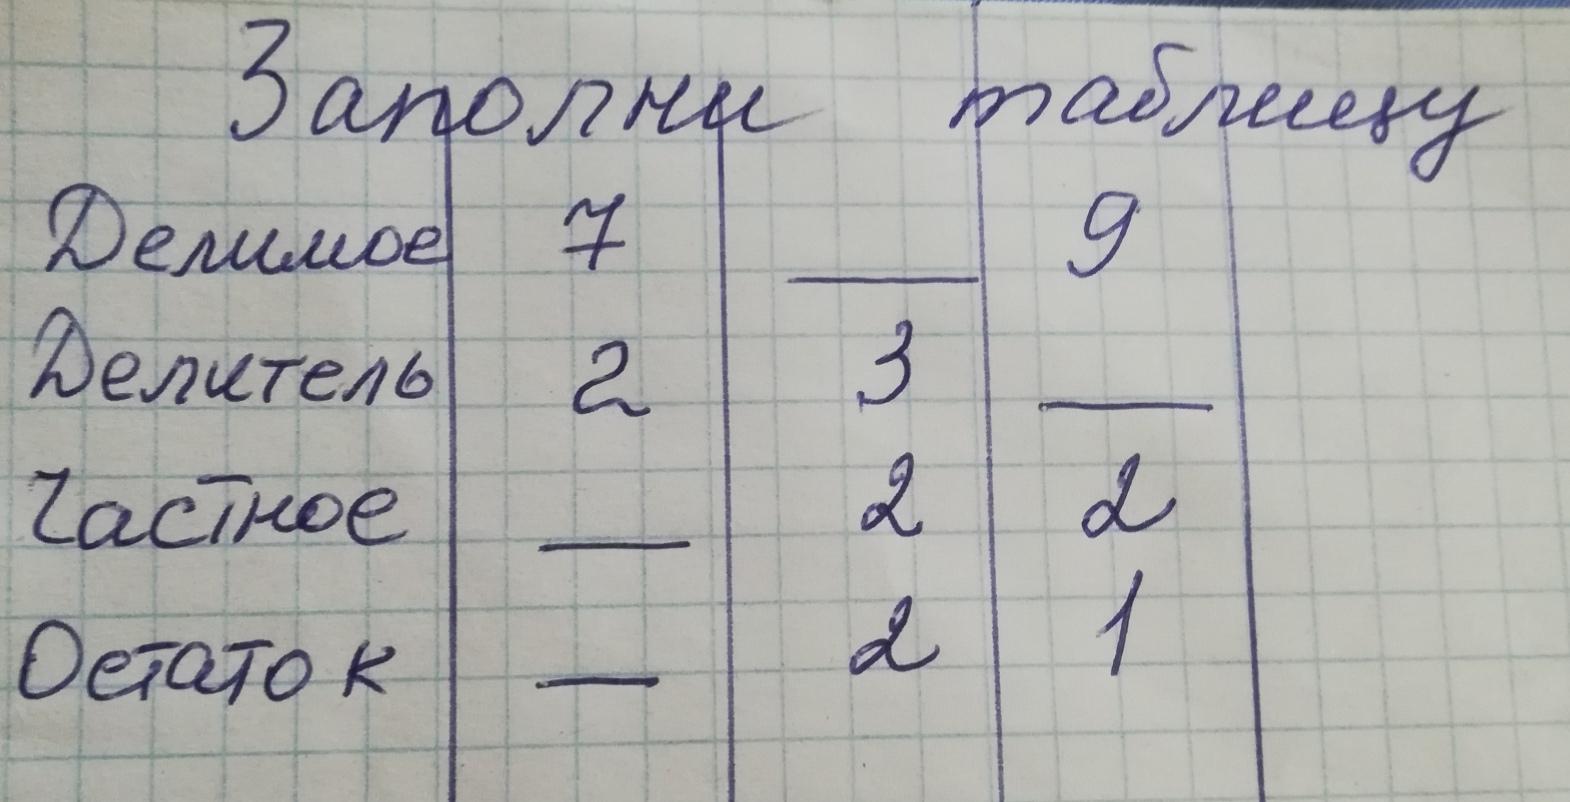 Заполни таблицу
Делимое 7 ___ 9
Делитель 2 3 ___
Частное ___ 2 2
Остаток ___ 2 1